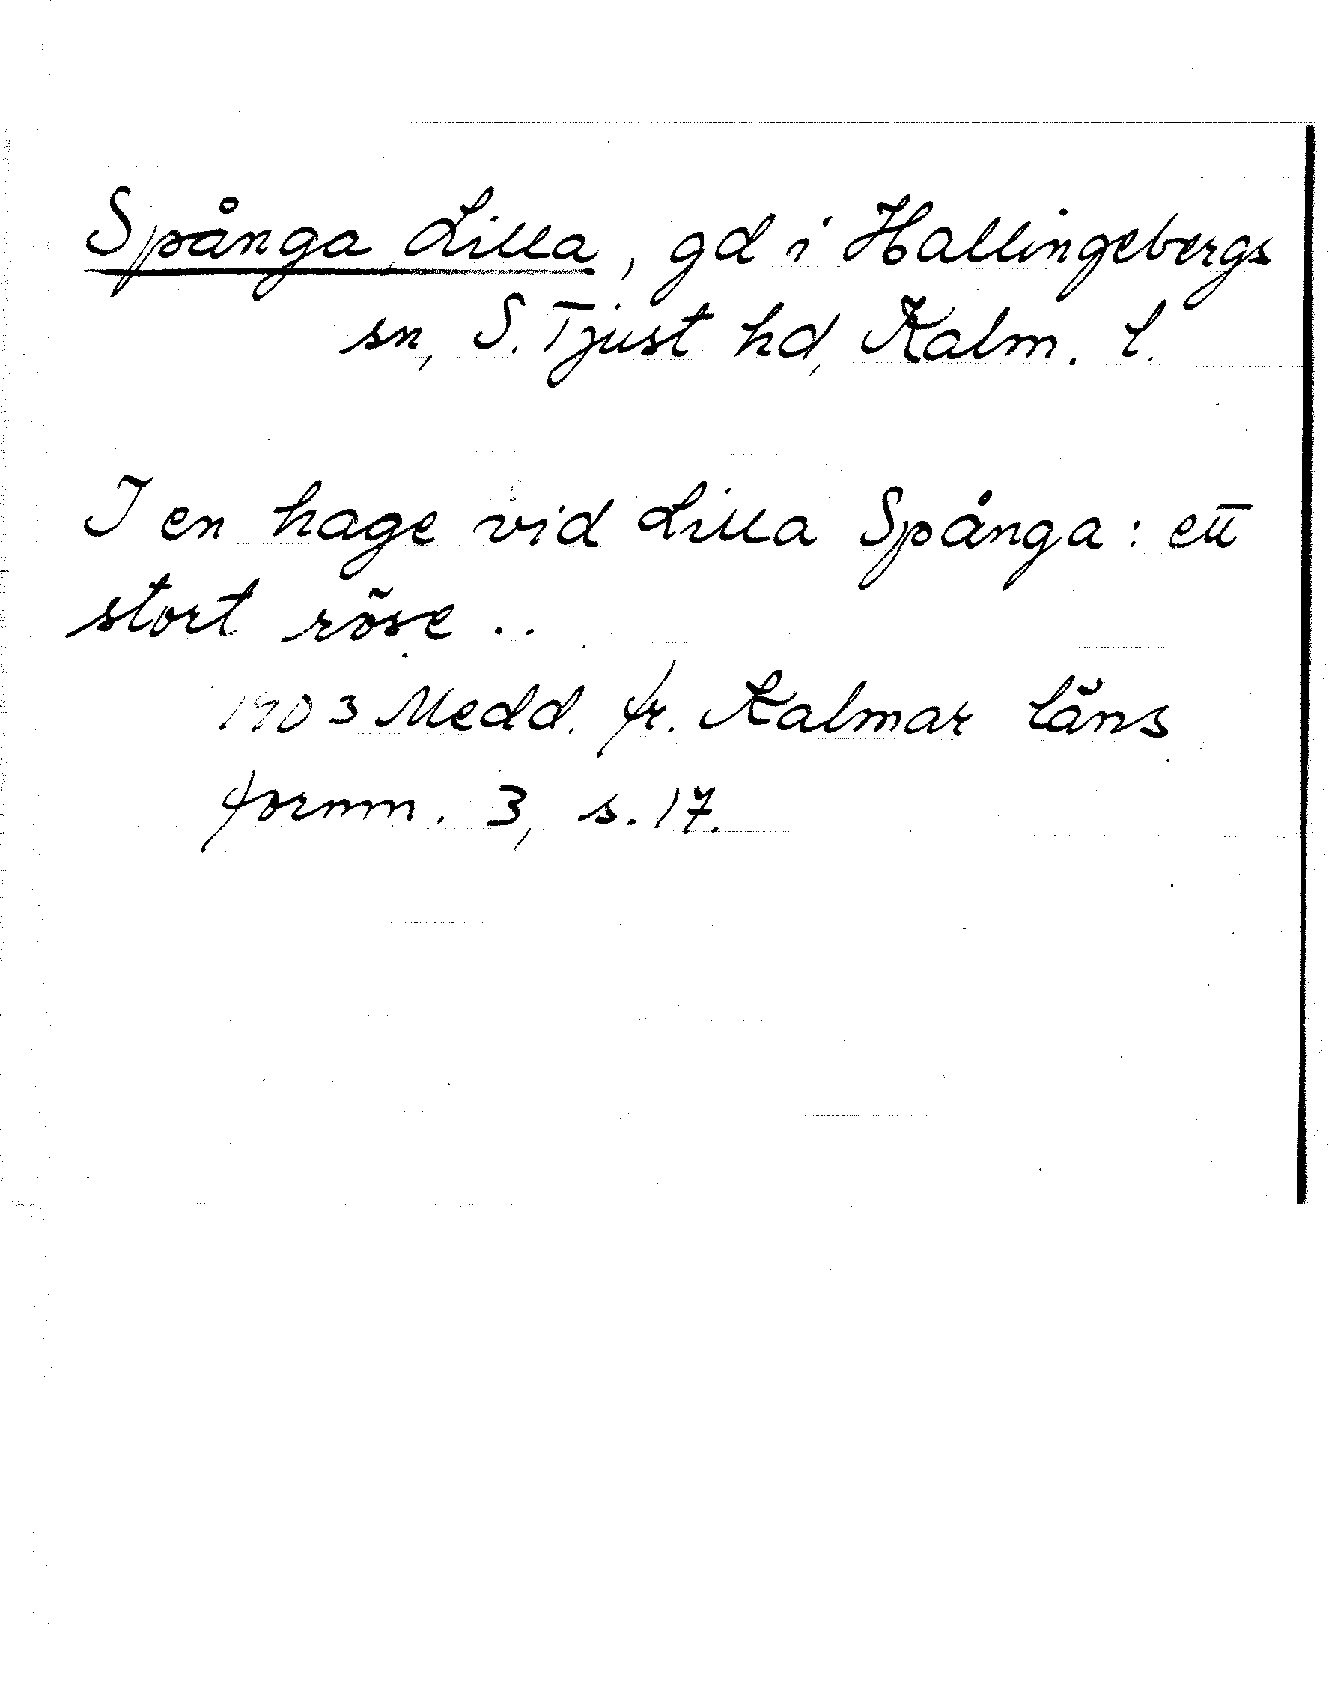 Spånga, Lilla, gd i Hallingebergs
sn, S. Tjust hd, Kalm. l.
I en hage vid Lilla Spånga: ett
stort röse ..
1903 Medd. fr. Kalmar läns
fornm. 3, s. 17.